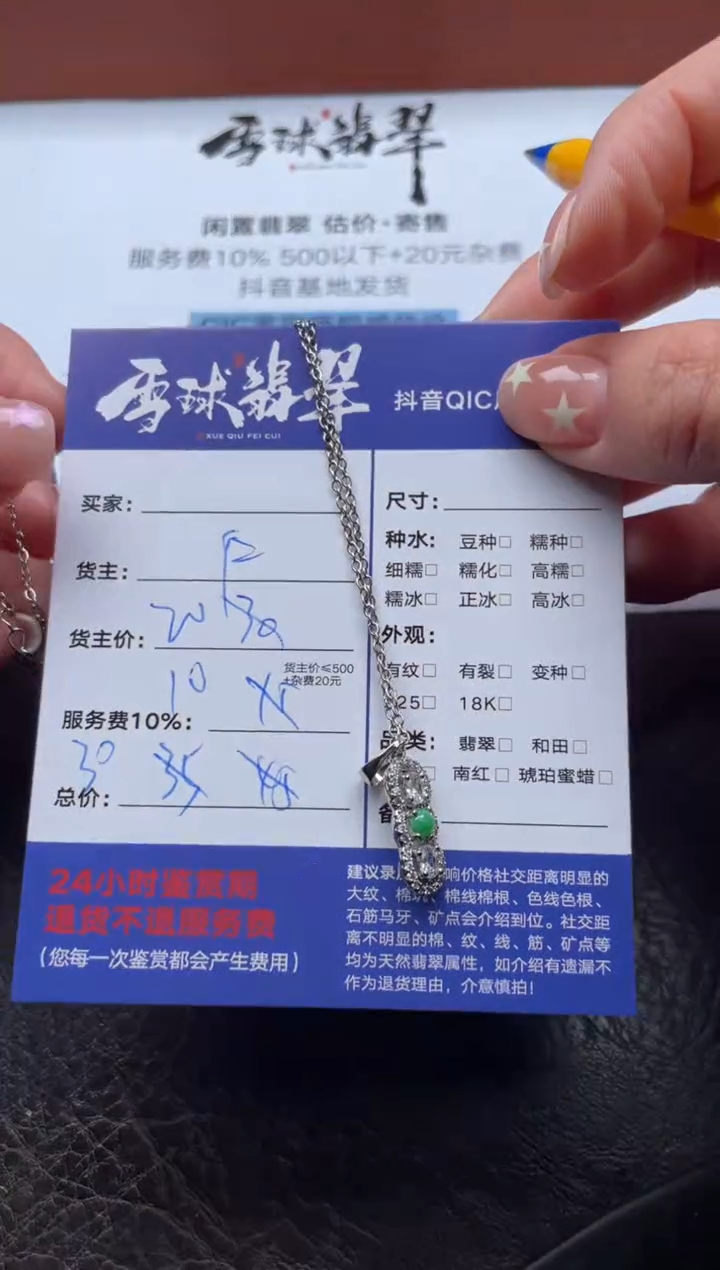 雪球翡翠
闲置翡翠 估价·寄售
服务费10% 500以下+20元杂费
抖音基地发货
雪球翡翠
XUE QIU FEI CUI
抖音QIC
买家:
货主:
货主价: 20
货主价≤500
+杂费20元
服务费10%: 10
总价: 30 35
24小时鉴赏期
退货不退服务费
(您每一次鉴赏都会产生费用)
尺寸:
种水: 豆种□ 糯种□
细糯□ 糯化□ 高糯□
糯冰□ 正冰□ 高冰□
外观:
有纹□ 有裂□ 变种□
25□ 18K□
品类: 翡翠□ 和田□
□ 南红□ 琥珀蜜蜡□
备
建议录 响价格社交距离明显的
大纹、棉 棉线棉根、色线色根、
石筋马牙、矿点会介绍到位。社交距
离不明显的棉、纹、线、筋、矿点等
均为天然翡翠属性，如介绍有遗漏不
作为退货理由，介意慎拍!